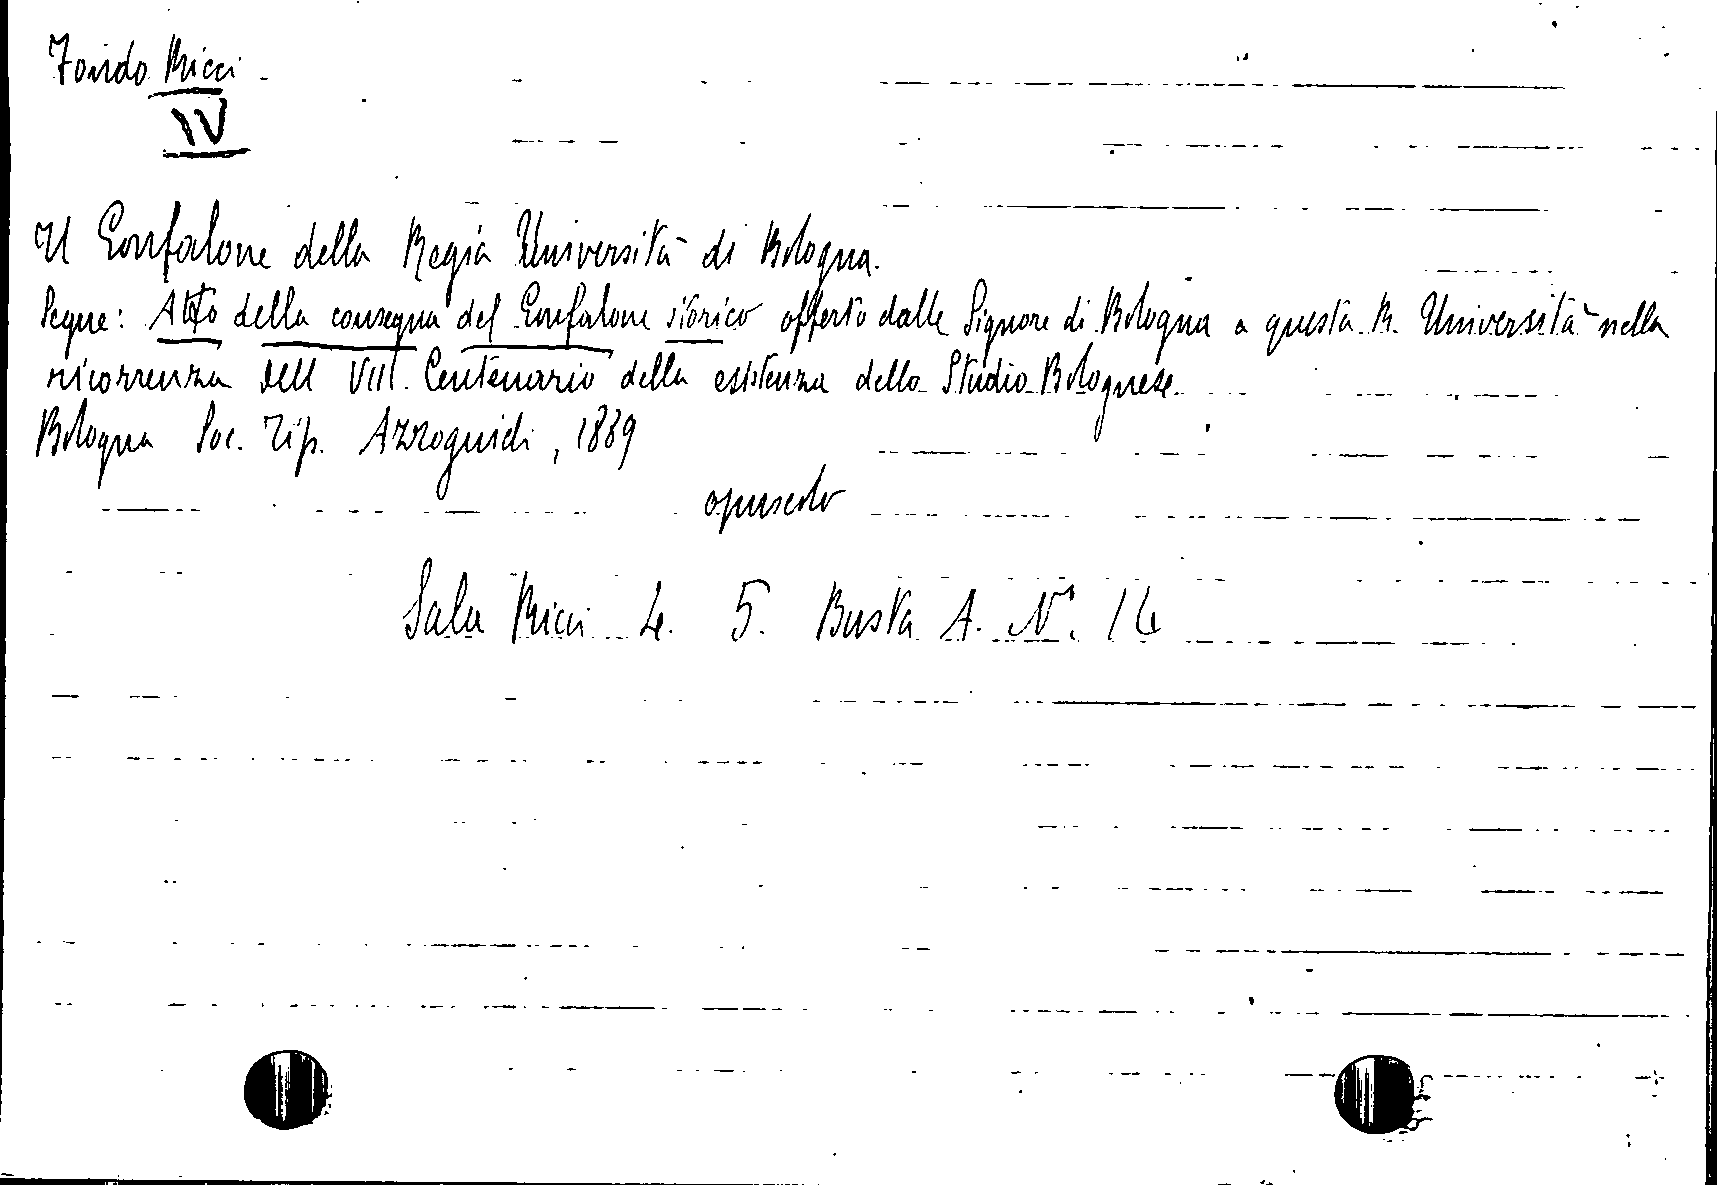 Fondo Ricci
IV
Il Gonfalone della Regia Università di Bologna.
Segue: Atto della consegna del Gonfalone storico offerto dalle Signore di Bologna a questa R. Università nella
ricorrenza dell VIII. Centenario della esistenza dello Studio Bolognese.
Bologna Soc. Tip. Azzoguidi, 1889
opuscolo
Sala Ricci L. 5. Busta A. N. 14